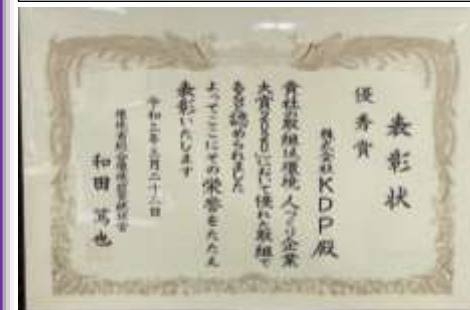 表彰状
優秀賞
株式会社KDP殿
貴社の取組は環境 人づくり企業
大賞2020において優れた取組で
あると認められました
よってここにその栄誉をたたえ
表彰いたします
令和三年五月二十一日
和田 篤也